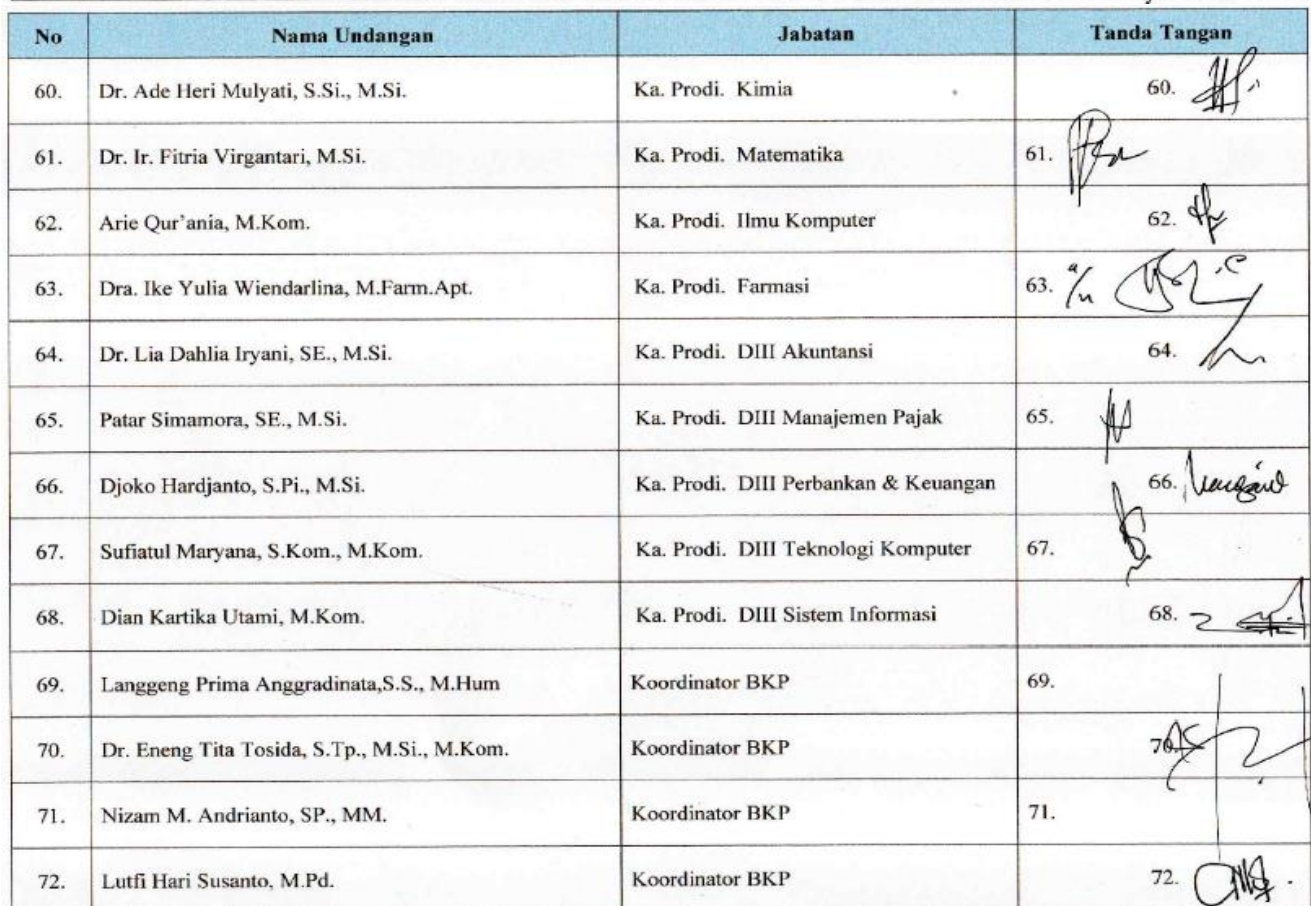 No Nama Undangan Jabatan Tanda Tangan
60. Dr. Ade Heri Mulyati, S.Si., M.Si. Ka. Prodi. Kimia 60.
61. Dr. Ir. Fitria Virgantari, M.Si. Ka. Prodi. Matematika 61.
62. Arie Qur'ania, M.Kom. Ka. Prodi. Ilmu Komputer 62.
63. Dra. Ike Yulia Wiendarlina, M.Farm.Apt. Ka. Prodi. Farmasi 63. a/n
64. Dr. Lia Dahlia Iryani, SE., M.Si. Ka. Prodi. DIII Akuntansi 64.
65. Patar Simamora, SE., M.Si. Ka. Prodi. DIII Manajemen Pajak 65.
66. Djoko Hardjanto, S.Pi., M.Si. Ka. Prodi. DIII Perbankan & Keuangan 66.
67. Sufiatul Maryana, S.Kom., M.Kom. Ka. Prodi. DIII Teknologi Komputer 67.
68. Dian Kartika Utami, M.Kom. Ka. Prodi. DIII Sistem Informasi 68.
69. Langgeng Prima Anggradinata,S.S., M.Hum Koordinator BKP 69.
70. Dr. Eneng Tita Tosida, S.Tp., M.Si., M.Kom. Koordinator BKP 70.
71. Nizam M. Andrianto, SP., MM. Koordinator BKP 71.
72. Lutfi Hari Susanto, M.Pd. Koordinator BKP 72.